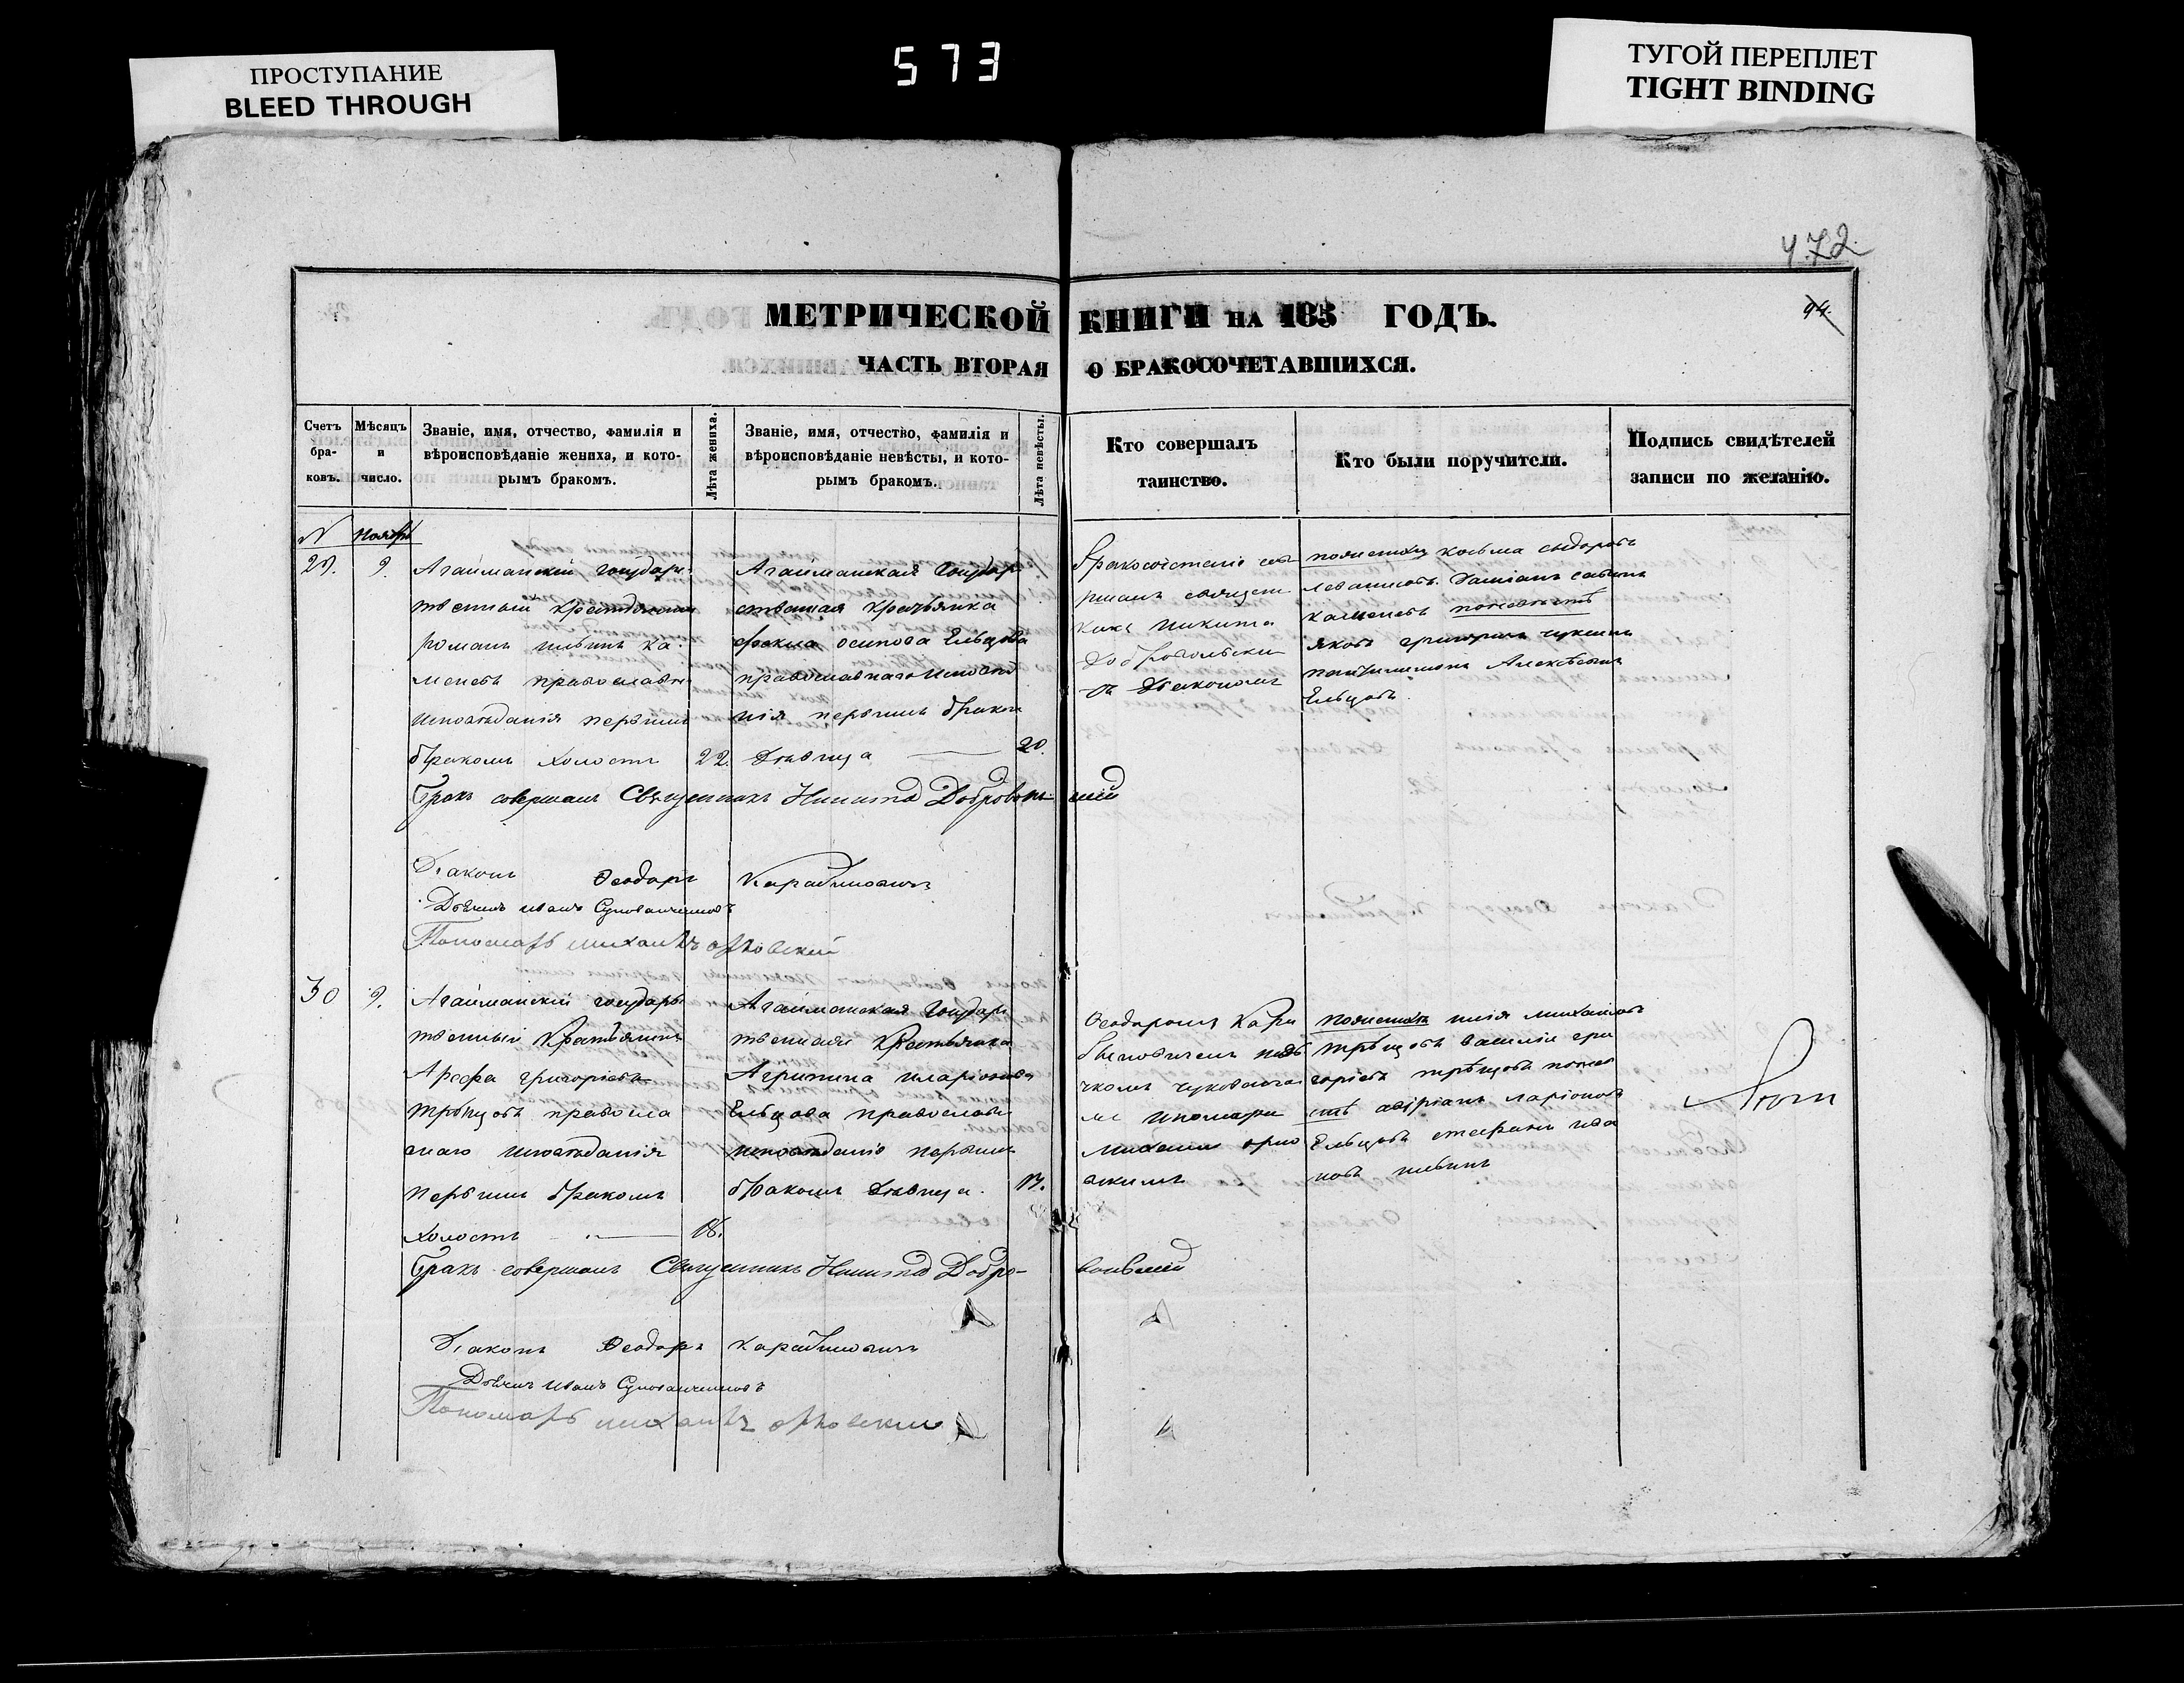 ПРОСТУПАНИЕ
BLEED THROUGH
573
ТУГОЙ ПЕРЕПЛЕТ
TIGHT BINDING
472
94.
МЕТРИЧЕСКОЙ КНИГИ НА 185 ГОДЪ.
ЧАСТЬ ВТОРАЯ О БРАКОСОЧЕТАВШИХСЯ.
Счетъ бра-ковъ.
Мѣсяцъ и число.
Званіе, имя, отчество, фамилія и
вѣроисповѣданіе жениха, и кото-
рымъ бракомъ.
Лѣта жениха.
Званіе, имя, отчество, фамилія и
вѣроисповѣданіе невѣсты, и кото-
рымъ бракомъ.
Лѣта невѣсты.
Кто совершалъ
таинство.
Кто были поручители.
Подпись свидѣтелей
записи по желанію.
N Ноябрь
29. 9.
Агайманскій государс
твенный крестьянинъ
романъ ильинъ Ка
меневъ православн
исповѣданія первымъ
бракомъ холостъ 22.
Агайманская Государ
ственная крестьянка
Фекла осипова Ельцова
православнаго исповѣд
нія первымъ браком
Дѣвица 20.
Бракосочетаніе сов
ршалъ священ
никъ Никита
Добровольски
съ Дьякономъ
по женихѣ козьма сидоровъ
Дамианъ
каменевъ по невѣстѣ
яковъ григорьевъ
Алексѣевъ
Ельцовъ.
Бракъ совершалъ Священникъ Никита Добровольскій
Діаконъ Ѳеодоръ
Дьячекъ иванъ
Пономарь михаилъ орловскій
30 9.
Агайманскій государс
твенный Крестьянинъ
Арефа григоріевъ
православ
наго исповѣданія
первымъ бракомъ
холостъ 18.
Агайманская Государ
твенная Крестьянка
Агрипина иларіонова
Ельцова православн
исповѣданіе первымъ
бракомъ Дѣвица.
Ѳеодоромъ
Михаилъ орло
вскимъ
по женихѣ илія михайловъ
василій гри
горіевъ
ларіоновъ
Ельцовъ стефанъ ива
новъ ильинъ
Бракъ совершалъ Священникъ Никита Добровольскій
Діаконъ Ѳеодоръ
Дьячекъ иванъ
Пономарь михаилъ орловскій